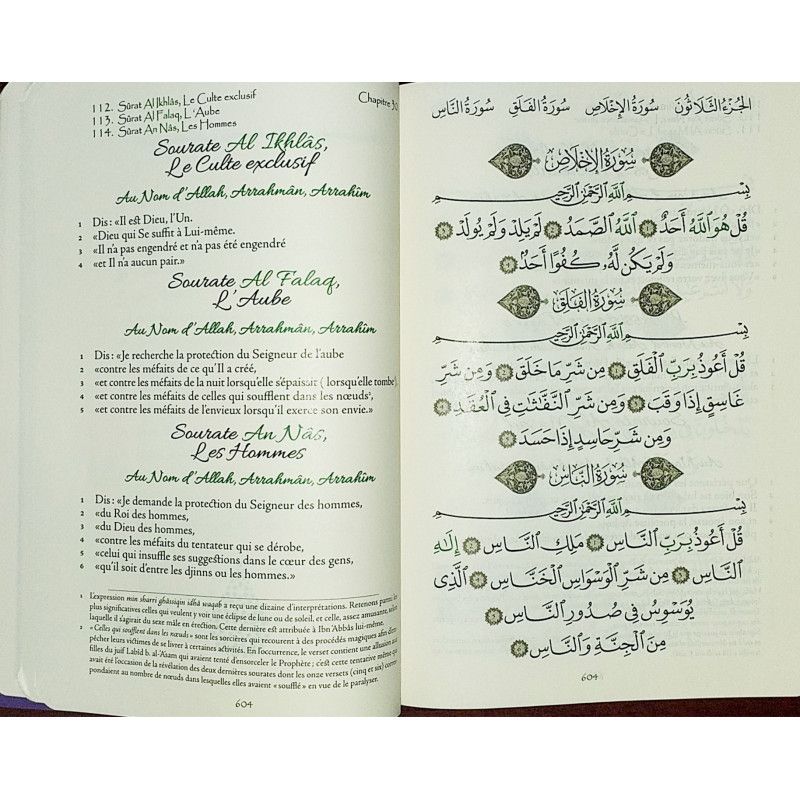 112. Sûrat Al Ikhlâs, Le Culte exclusif
113. Sûrat Al Falaq, L'Aube
114. Sûrat An Nâs, Les Hommes
Chapitre 30
Sourate Al Ikhlâs,
Le Culte exclusif
Au Nom d'Allah, Arrahmân, Arrahîm
1 Dis : «Il est Dieu, l'Un.
2 «Dieu qui Se suffit à Lui-même.
3 «Il n'a pas engendré et n'a pas été engendré
4 «et Il n'a aucun pair.»
Sourate Al Falaq,
L'Aube
Au Nom d'Allah, Arrahmân, Arrahîm
1 Dis : «Je recherche la protection du Seigneur de l'aube
2 «contre les méfaits de ce qu'Il a créé,
3 «et contre les méfaits de la nuit lorsqu'elle s'épaissit ( lorsqu'elle tombe¹).
4 «et contre les méfaits de celles qui soufflent dans les nœuds²,
5 «et contre les méfaits de l'envieux lorsqu'il exerce son envie.»
Sourate An Nâs,
Les Hommes
Au Nom d'Allah, Arrahmân, Arrahîm
1 Dis : «Je demande la protection du Seigneur des hommes,
2 «du Roi des hommes,
3 «du Dieu des hommes,
4 «contre les méfaits du tentateur qui se dérobe,
5 «celui qui insuffle ses suggestions dans le cœur des gens,
6 «qu'il soit d'entre les djinns ou les hommes.»
1 L'expression min sharri ghâssiqin idhâ waqab a reçu une dizaine d'interprétations. Retenons parmi les
plus significatives celles qui veulent y voir une éclipse de lune ou de soleil, et celle, assez amusante, selon
laquelle il s'agirait du sexe mâle en érection. Cette dernière est attribuée à Ibn 'Abbâs lui-même.
2 « Celles qui soufflent dans les nœuds» sont les sorcières qui recourent à des procédés magiques afin d'em-
pêcher leurs victimes de se livrer à certaines activités. En l'occurrence, le verset contient une allusion aux
filles du juif Labîd b. al-'Aṣam qui avaient tenté d'ensorceler le Prophète ; c'est cette tentative même qui
avait été l'occasion de la révélation des deux dernières sourates dont les onze versets (cinq et six) corres-
pondaient au nombre de nœuds dans lesquelles elles avaient « soufflé » en vue de le paralyser.
604
الجُزْءُ الثَّلَاثُونَ سُورَةُ الإِخْلَاصِ سُورَةُ الفَلَقِ سُورَةُ النَّاسِ
سُورَةُ الإِخْلَاصِ
بِسْمِ ٱللَّهِ ٱلرَّحْمَٰنِ ٱلرَّحِيمِ
قُلْ هُوَ ٱللَّهُ أَحَدٌ ١ ٱللَّهُ ٱلصَّمَدُ ٢ لَمْ يَلِدْ وَلَمْ يُولَدْ ٣
وَلَمْ يَكُن لَّهُۥ كُفُوًا أَحَدٌۢ ٤
سُورَةُ الفَلَقِ
بِسْمِ ٱللَّهِ ٱلرَّحْمَٰنِ ٱلرَّحِيمِ
قُلْ أَعُوذُ بِرَبِّ ٱلْفَلَقِ ١ مِن شَرِّ مَا خَلَقَ ٢ وَمِن شَرِّ
غَاسِقٍ إِذَا وَقَبَ ٣ وَمِن شَرِّ ٱلنَّفَّٰثَٰتِ فِى ٱلْعُقَدِ ٤
وَمِن شَرِّ حَاسِدٍ إِذَا حَسَدَ ٥
سُورَةُ النَّاسِ
بِسْمِ ٱللَّهِ ٱلرَّحْمَٰنِ ٱلرَّحِيمِ
قُلْ أَعُوذُ بِرَبِّ ٱلنَّاسِ ١ مَلِكِ ٱلنَّاسِ ٢ إِلَٰهِ
ٱلنَّاسِ ٣ مِن شَرِّ ٱلْوَسْوَاسِ ٱلْخَنَّاسِ ٤ ٱلَّذِى
يُوَسْوِسُ فِى صُدُورِ ٱلنَّاسِ ٥
مِنَ ٱلْجِنَّةِ وَٱلنَّاسِ ٦
604